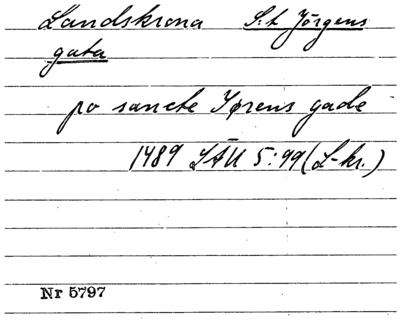 Landskrona S:t Jörgens
gata
po sancte Iørens gade
1489 LÄU 5:99 (L-kr.)
Nr 5797